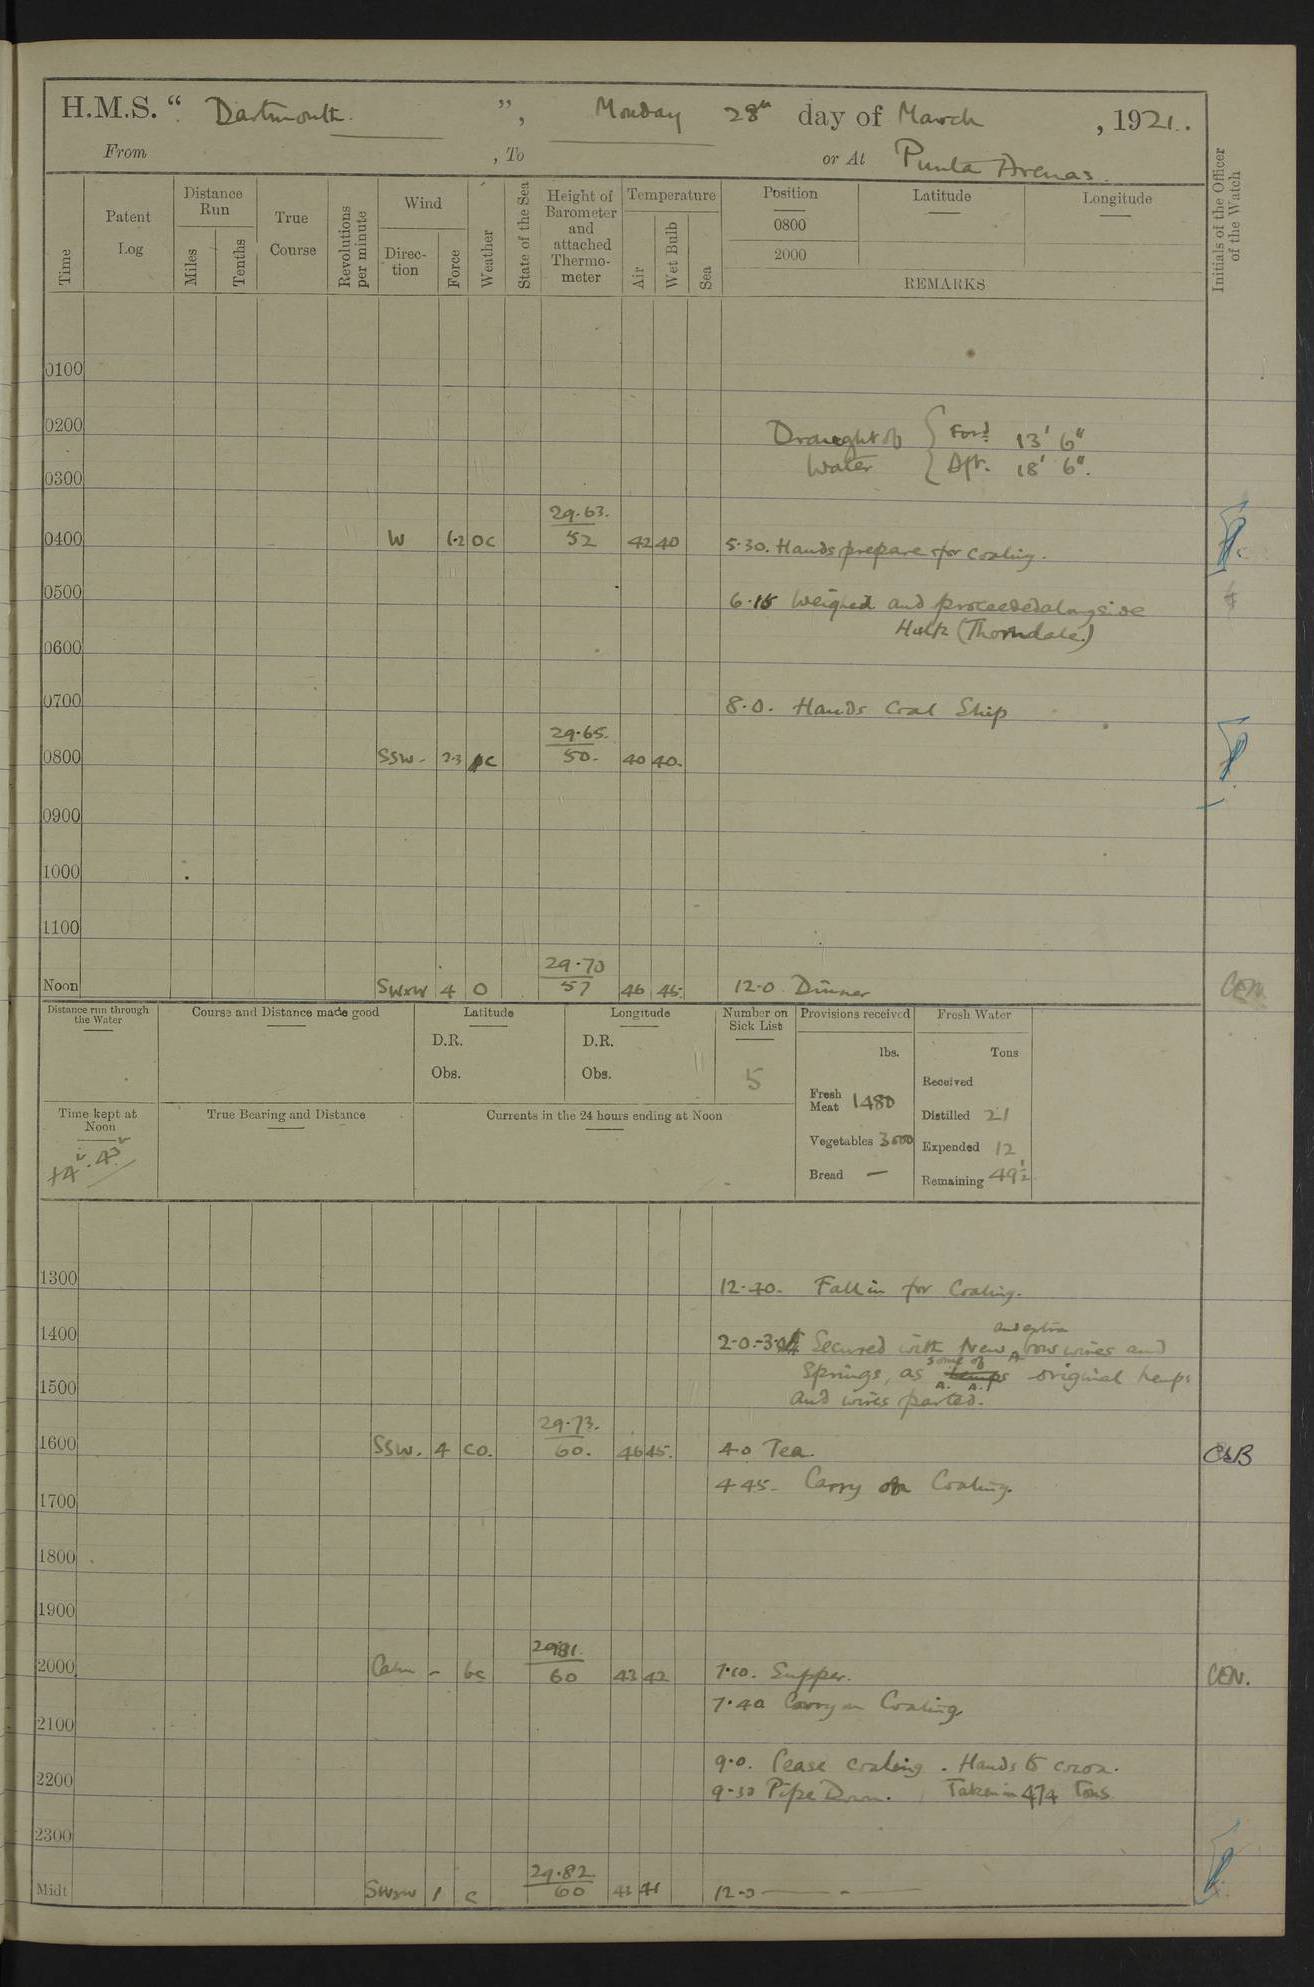 H.M.S. “ Dartmouth. ”, Monday 28th day of March, 1921.
From , To or At Punta Arenas.
Time
Patent Log
Distance Run
Miles
Tenths
True Course
Revolutions per minute
Wind
Direction
Force
Weather
State of the Sea
Height of Barometer and attached Thermometer
Temperature
Air
Wet Bulb
Sea
Position
0800
2000
Latitude
Longitude
REMARKS
Initials of the Officer of the Watch
0100
0200
Draught of { Ford. 13' 6"
Water { Aft. 18' 6".
0300
29.63.
0400 W 1-2 oc 52 42 40 5.30. Hands prepare for coaling.
0500
6.15 Weighed and proceeded alongside
Hulk (Thorndale.)
0600
0700
8.0. Hands Coal Ship
29.65.
0800 SSW. 2-3 c 50. 40 40.
0900
1000
1100
29.70
Noon SWxW 4 O 57 46 45. 12.0 Dinner CEN.
Distance run through the Water
Course and Distance made good
Latitude
D.R.
Obs.
Longitude
D.R.
Obs.
Number on Sick List
5
Provisions received
lbs.
Fresh Meat 1480
Vegetables 3000
Bread —
Fresh Water
Tons
Received
Distilled 21
Expended 12
Remaining 49½
Time kept at Noon
+4.43
True Bearing and Distance
Currents in the 24 hours ending at Noon
1300
12.30. Fall in for Coaling.
1400
and extra
2.0.-3. Secured with New bow wires and
some of
Springs, as original hemps
1500
and wires parted.
29.73.
1600 SSW. 4 co. 60. 46 45. 4.0 Tea. CLB
4 45. Carry on Coaling.
1700
1800
1900
29.81.
2000 Calm - bc 60 43 42 7.10. Supper. CEN.
7.40 Carry on Coaling.
2100
9.0. Cease coaling. Hands to cocoa.
2200
9-30 Pipe Down. Taken in 474 Tons
2300
29.82
Midt SWxW 1 c 60 43 41 12-0 — - —